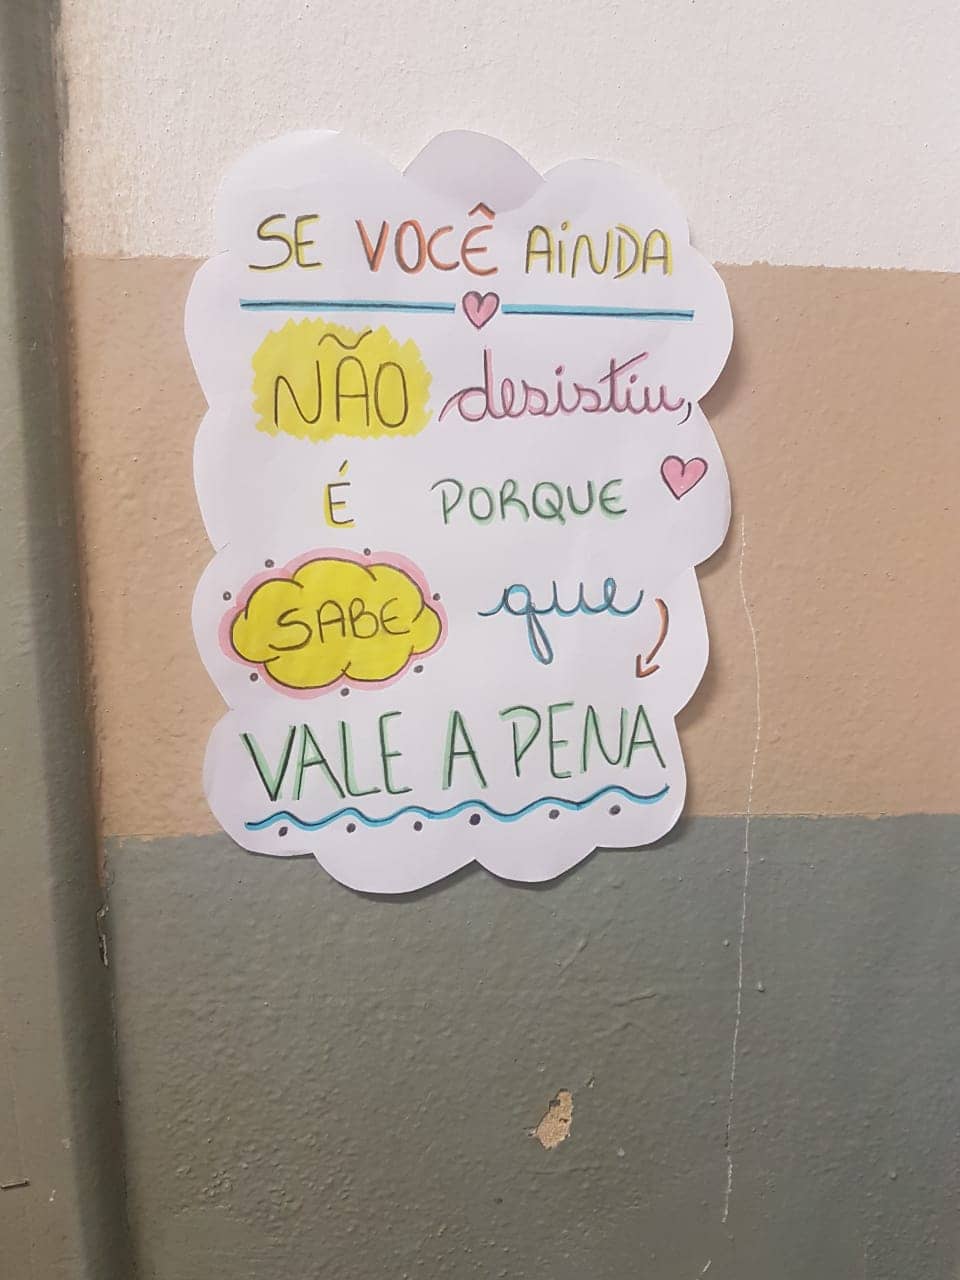 SE VOCÊ AINDA
NÃO desistiu,
É PORQUE
SABE que
VALE A PENA